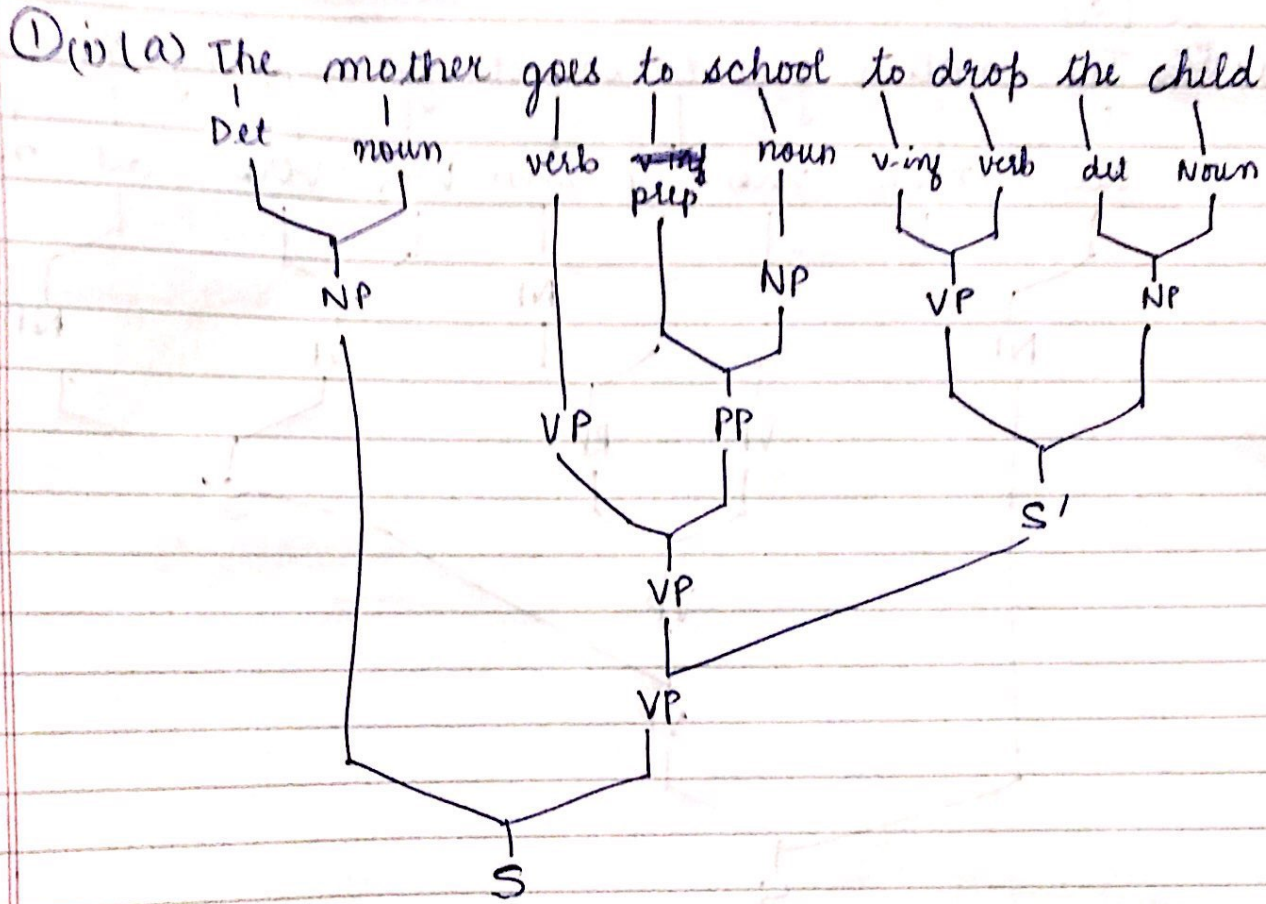 ① (i) (a) The mother goes to school to drop the child
Det noun verb v-inf noun v-inf verb det Noun
prep
NP NP VP NP
VP PP
S'
VP
VP.
S